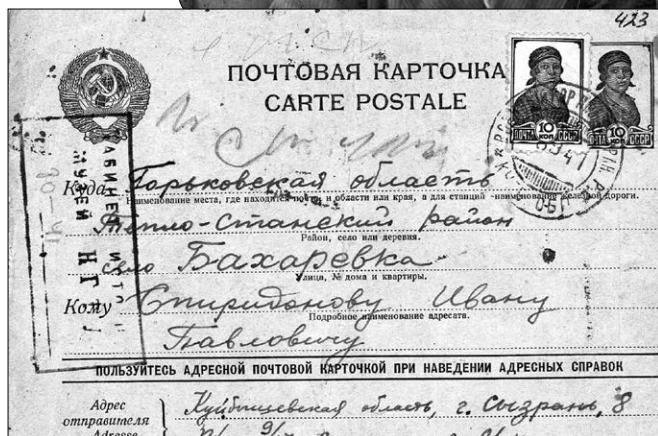 423
ПОЧТОВАЯ КАРТОЧКА
CARTE POSTALE
10 КОП
ПОЧТА СССР
10 КОП
СССР
КАБИНЕТ
МУЗЕЙ
Куда Горьковская область
Наименование места, где находится почта, и области или края, а для станций - наименование железной дороги.
Тепло-Станский район
Район, село или деревня.
село Бахаревка
Улица, № дома и квартиры.
Кому Спиридонову Ивану
Подробное наименование адресата.
Павловичу
ПОЛЬЗУЙТЕСЬ АДРЕСНОЙ ПОЧТОВОЙ КАРТОЧКОЙ ПРИ НАВЕДЕНИИ АДРЕСНЫХ СПРАВОК
Адрес Куйбышевская область, г. Сызрань, 8
отправителя
Adresse